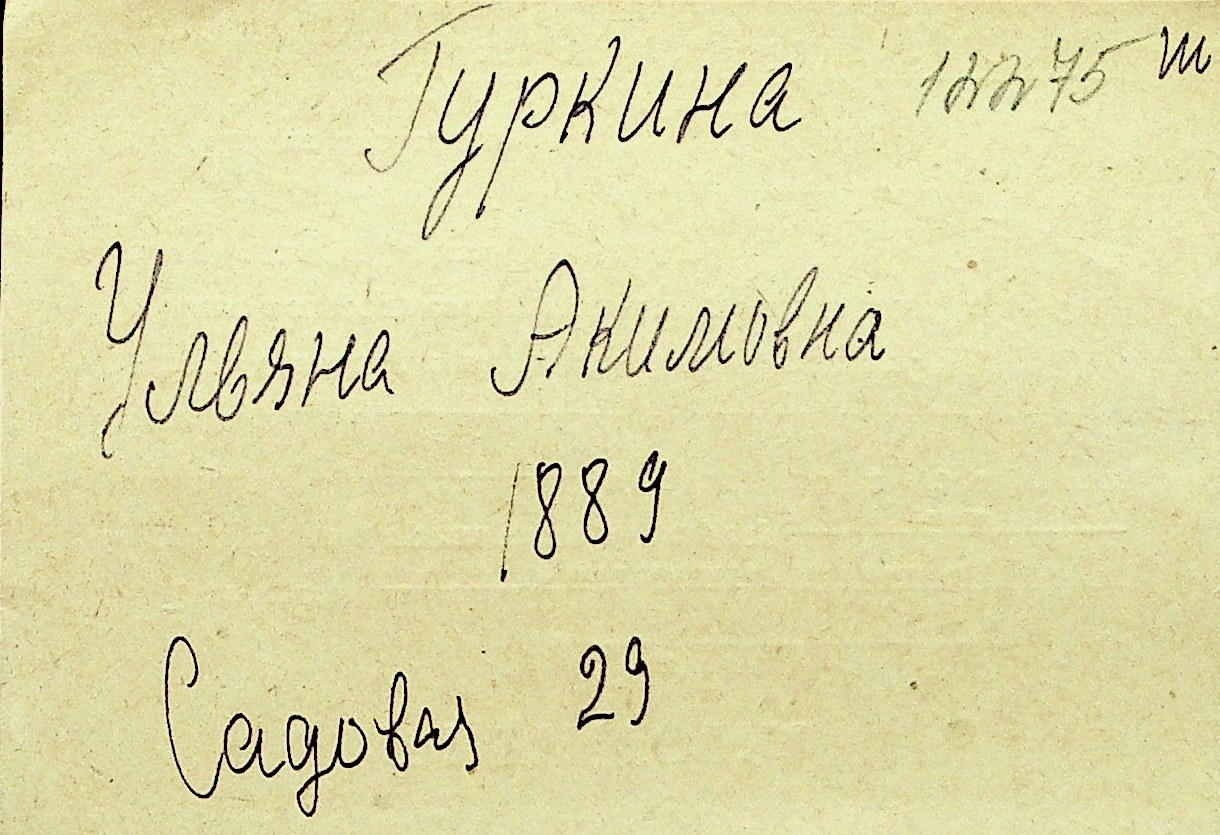 Гуркина 12275 ш
Ульяна Акимовна
1889
Садовая 29